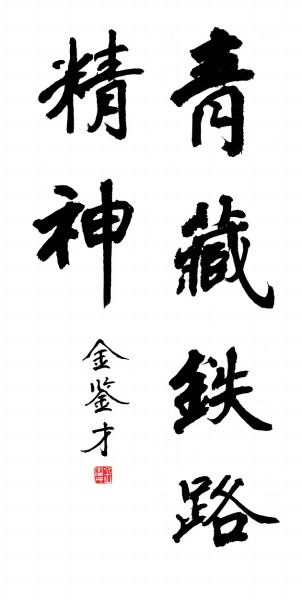 青藏鉄路
精神
金鉴才